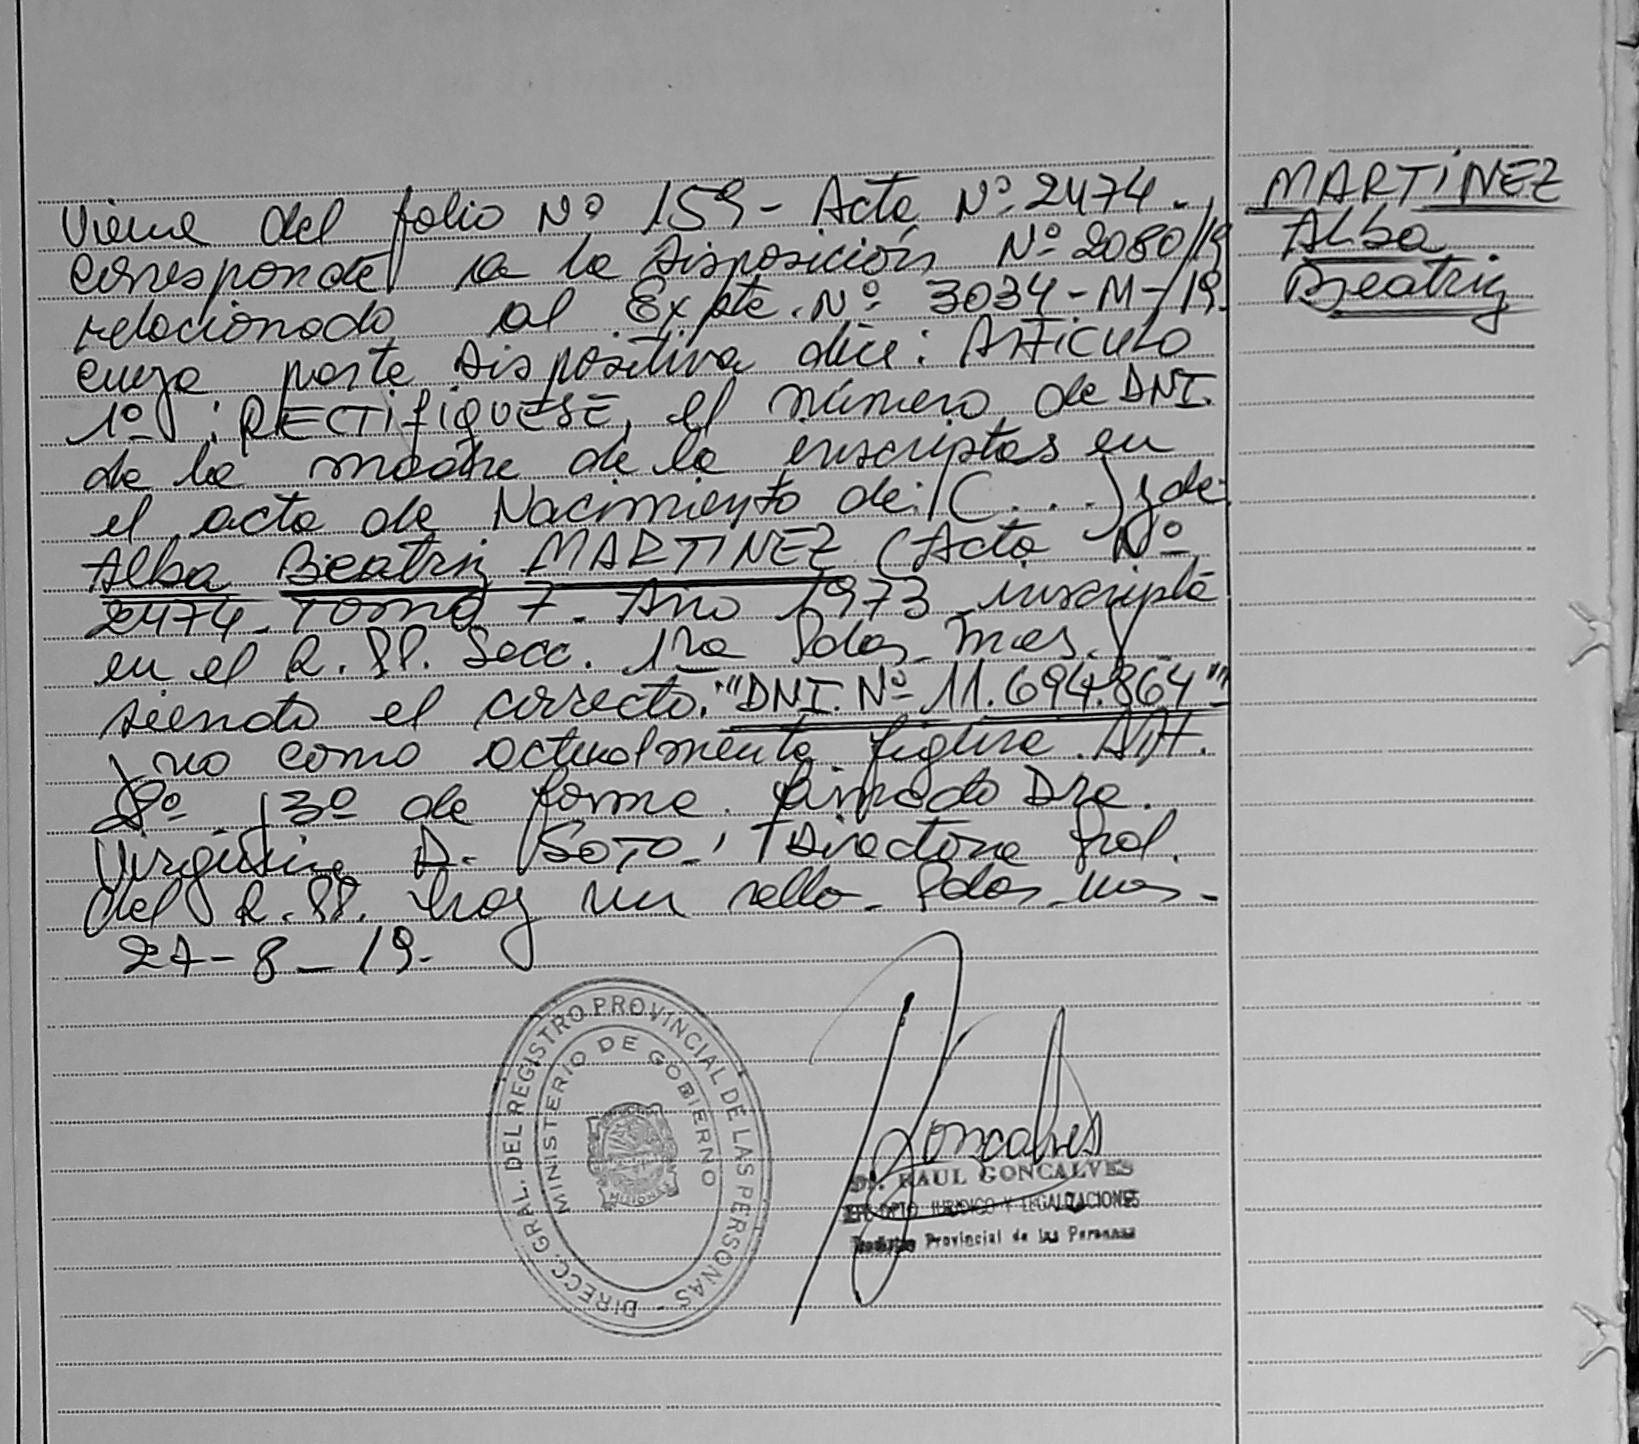 Viene del folio Nº 159 - Acta Nº 2474 -
corresponde a la Disposición Nº 2080/19
relacionado al Expte. Nº 3034-M-/19.
cuya parte Dispositiva dice: ARTICULO
1º : RECTIFIQUESE, el número de DNI.
de la madre de la inscriptas en
el acta de Nacimiento de: (C...) y de:
Alba Beatriz MARTINEZ (Acta Nº
2474 - Tomo 7 - Año 1973 inscripta
en el R.PP. Secc. 1ra Pdas. Mnes.)
siendo el correcto: "DNI. Nº 11.694.864"
y no como actualmente figura. Art.
2º y 3º de forma. firmado Dra.
Virginia A. SOTO, Directora Gral.
del R.PP. hay un sello - Pdas. Mnes -
27-8-19.
MARTÍNEZ
Alba
Beatriz
DIRECC. GRAL. DEL REGISTRO PROVINCIAL DE LAS PERSONAS -
MINISTERIO DE GOBIERNO
MISIONES
Goncalves
Dr. RAUL GONCALVES
DPTO. JURIDICO Y LEGALIZACIONES
Registro Provincial de las Personas